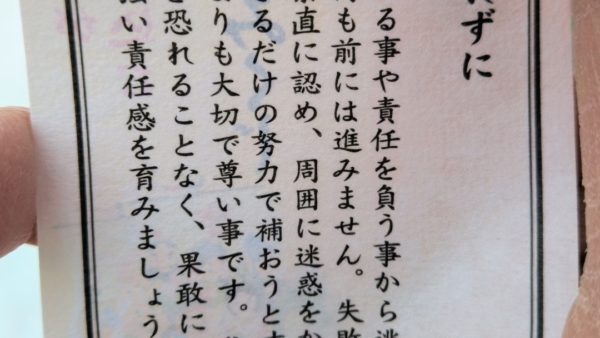 ずに
る事や責任を負う事から逃
も前には進みません。失敗
直に認め、周囲に迷惑をか
るだけの努力で補おうとす
りも大切で尊い事です。
恐れることなく、果敢に
強い責任感を育みましょう